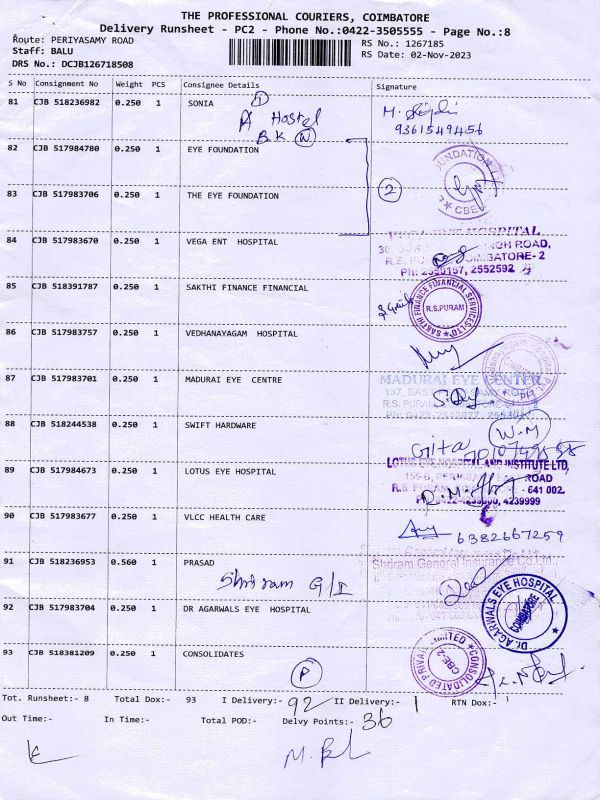 THE PROFESSIONAL COURIERS, COIMBATORE
Delivery Runsheet - PC2 - Phone No.:0422-3505555 - Page No.:8
Route: PERIYASAMY ROAD
RS No.: 1267185
Staff: BALU
RS Date: 02-Nov-2023
DRS No.: DCJB126718508
S No Consignment No Weight PCS Consignee Details Signature
81 CJB 518236982 0.250 1 SONIA
1
Hostel
B.K W
9361549456
82 CJB 517984780 0.250 1 EYE FOUNDATION
UNDATION
CBE
83 CJB 517983706 0.250 1 THE EYE FOUNDATION
2
84 CJB 517983670 0.250 1 VEGA ENT HOSPITAL
HOSPITAL
ROAD,
COIMBATORE- 2
2552592
85 CJB 518391787 0.250 1 SAKTHI FINANCE FINANCIAL
SAKTHI FINANCE FINANCIAL SERVICES LTD
R.S.PURAM
86 CJB 517983757 0.250 1 VEDHANAYAGAM HOSPITAL
87 CJB 517983701 0.250 1 MADURAI EYE CENTRE
MADURAI EYE CENTER
88 CJB 518244538 0.250 1 SWIFT HARDWARE
Gita W.M
89 CJB 517984673 0.250 1 LOTUS EYE HOSPITAL
LOTUS EYE HOSPITAL AND INSTITUTE LTD,
ROAD
R.S. - 641 002.
4239999
90 CJB 517983677 0.250 1 VLCC HEALTH CARE
6382667259
91 CJB 518236953 0.560 1 PRASAD
Shriram G/I
Shriram General Insurance Co.Ltd.,
92 CJB 517983704 0.250 1 DR AGARWALS EYE HOSPITAL
Dr. AGARWALS EYE HOSPITAL
COIMBATORE
93 CJB 518381209 0.250 1 CONSOLIDATES
P
CONSOLIDATED PRIVATE LIMITED
CBE-2
Tot. Runsheet:- 8 Total Dox:- 93 I Delivery:- 92 II Delivery:- 1 RTN Dox:- 1
Out Time:- In Time:- Total POD:- Delvy Points:- 36